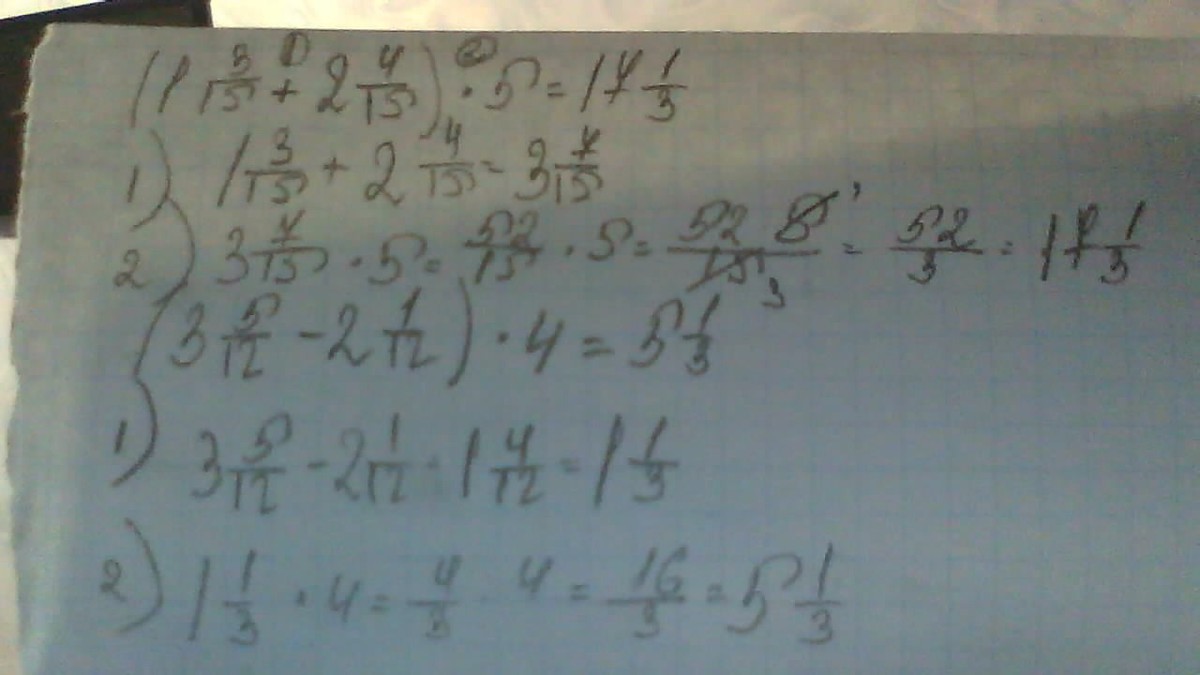 (1 3/15 + 2 4/15) · 5 = 17 1/3
1) 1 3/15 + 2 4/15 = 3 7/15
2) 3 7/15 · 5 = 52/15 · 5 = 52 5/15 3 = 52/3 = 17 1/3
(3 5/12 - 2 1/12) · 4 = 5 1/3
1) 3 5/12 - 2 1/12 = 1 4/12 = 1 1/3
2) 1 1/3 · 4 = 4/3 · 4 = 16/3 = 5 1/3